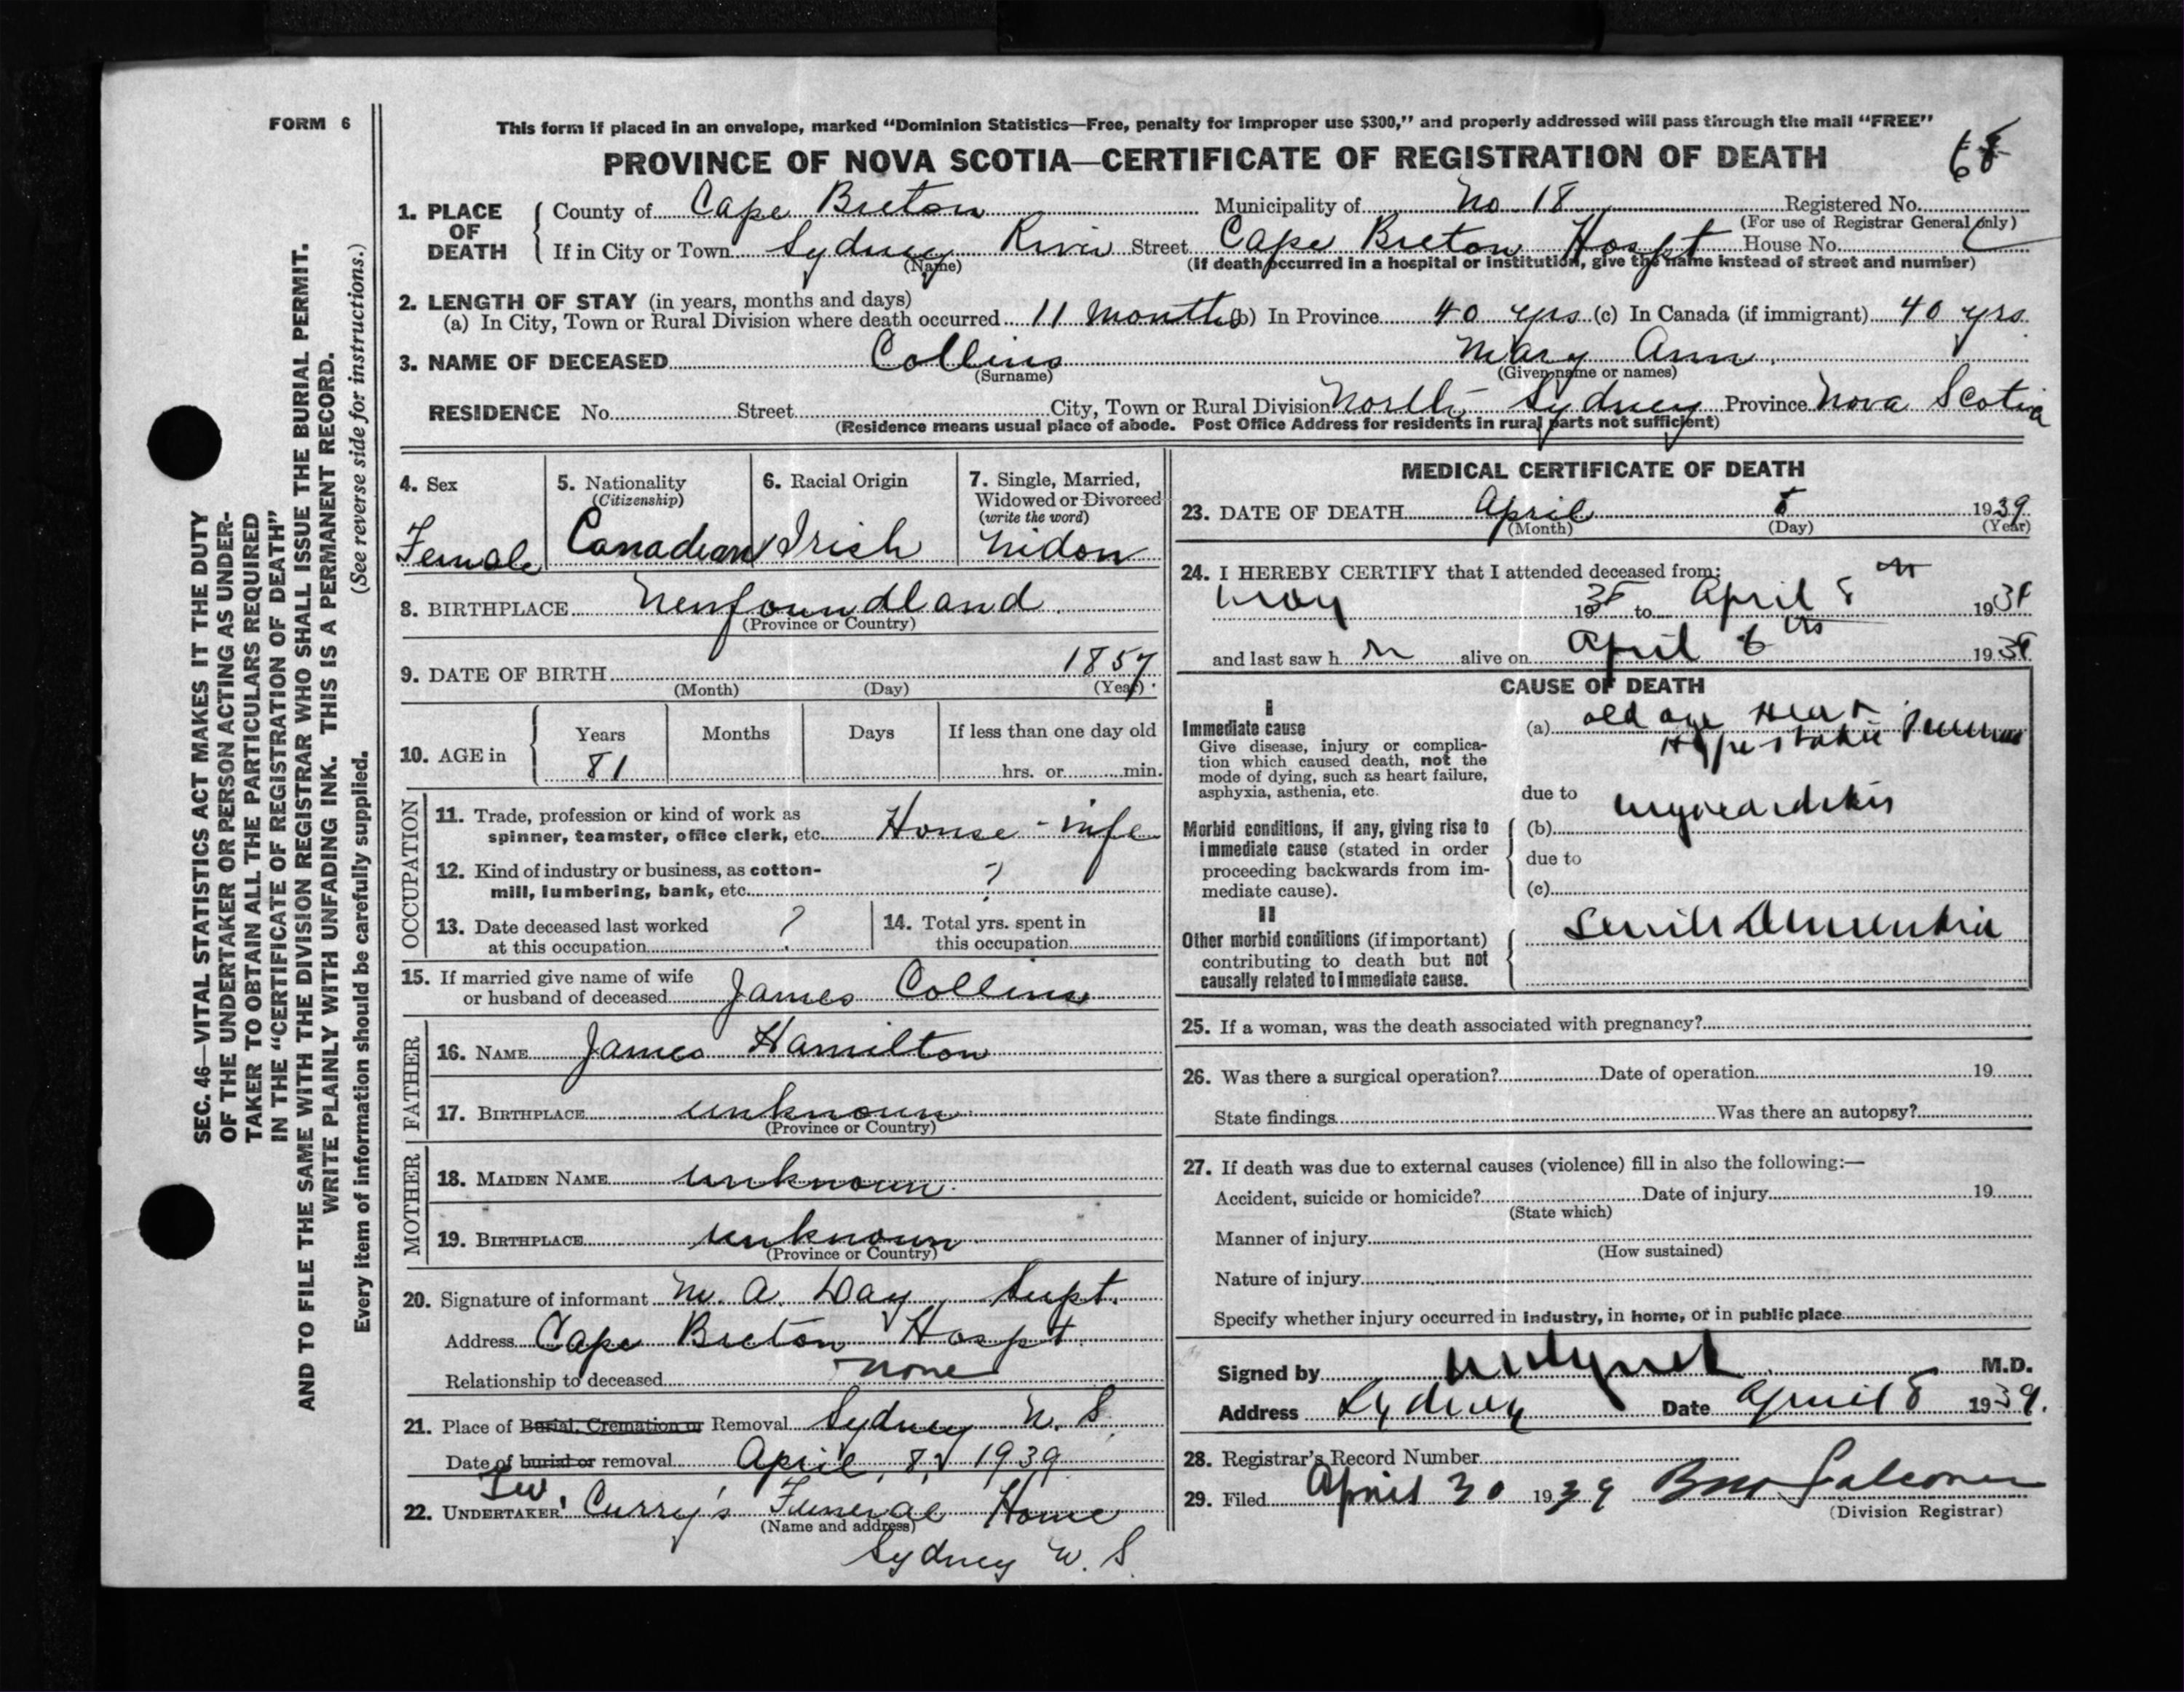 FORM 6
This form if placed in an envelope, marked “Dominion Statistics—Free, penalty for improper use $300,” and properly addressed will pass through the mail “FREE”
PROVINCE OF NOVA SCOTIA—CERTIFICATE OF REGISTRATION OF DEATH
68
1. PLACE OF DEATH
County of Cape Breton Municipality of No 18 Registered No.
(For use of Registrar General only)
If in City or Town Sydney River Street Cape Breton Hospt House No.
(Name) (If death occurred in a hospital or institution, give the name instead of street and number)
2. LENGTH OF STAY (in years, months and days)
(a) In City, Town or Rural Division where death occurred 11 months (b) In Province 40 yrs (c) In Canada (if immigrant) 40 yrs.
3. NAME OF DECEASED Collins Mary Ann.
(Surname) (Given name or names)
RESIDENCE No. Street City, Town or Rural Division North Sydney Province Nova Scotia
(Residence means usual place of abode. Post Office Address for residents in rural parts not sufficient)
4. Sex
Female
5. Nationality
(Citizenship)
Canadian
6. Racial Origin
Irish
7. Single, Married,
Widowed or Divorced
(write the word)
Widow
8. BIRTHPLACE Newfoundland.
(Province or Country)
9. DATE OF BIRTH 1857.
(Month) (Day) (Year)
10. AGE in
Years Months Days If less than one day old
81 hrs. or min.
OCCUPATION
11. Trade, profession or kind of work as
spinner, teamster, office clerk, etc. House-wife
12. Kind of industry or business, as cotton-
mill, lumbering, bank, etc. ?
13. Date deceased last worked
at this occupation ?
14. Total yrs. spent in
this occupation
15. If married give name of wife
or husband of deceased James Collins
FATHER
16. NAME James Hamilton
17. BIRTHPLACE unknown
(Province or Country)
MOTHER
18. MAIDEN NAME unknown.
19. BIRTHPLACE unknown
(Province or Country)
20. Signature of informant M. A. Day Supt.
Address Cape Breton Hospt.
Relationship to deceased none
21. Place of Burial, Cremation or Removal Sydney N. S.
Date of burial or removal April, 8, 1939
22. UNDERTAKER Curry's Funeral Home
(Name and address)
Sydney N. S.
MEDICAL CERTIFICATE OF DEATH
23. DATE OF DEATH April 8 1939
(Month) (Day) (Year)
24. I HEREBY CERTIFY that I attended deceased from:
May 1938 to April 8 19
and last saw h er alive on April 19
CAUSE OF DEATH
I
Immediate cause
Give disease, injury or complica-
tion which caused death, not the
mode of dying, such as heart failure,
asphyxia, asthenia, etc.
(a) old age
Hypostatic
due to
Morbid conditions, if any, giving rise to
immediate cause (stated in order
proceeding backwards from im-
mediate cause).
(b) myocarditis
due to
(c)
II
Other morbid conditions (if important)
contributing to death but not
causally related to immediate cause.
Senile Dementia
25. If a woman, was the death associated with pregnancy?
26. Was there a surgical operation? Date of operation 19
State findings Was there an autopsy?
27. If death was due to external causes (violence) fill in also the following:—
Accident, suicide or homicide? Date of injury 19
(State which)
Manner of injury
(How sustained)
Nature of injury
Specify whether injury occurred in industry, in home, or in public place
Signed by M.D.
Address Sydney Date April 8 1939.
28. Registrar's Record Number
29. Filed April 30 1939 Falconer
(Division Registrar)
SEC. 46—VITAL STATISTICS ACT MAKES IT THE DUTY
OF THE UNDERTAKER OR PERSON ACTING AS UNDER-
TAKER TO OBTAIN ALL THE PARTICULARS REQUIRED
IN THE “CERTIFICATE OF REGISTRATION OF DEATH”
AND TO FILE THE SAME WITH THE DIVISION REGISTRAR WHO SHALL ISSUE THE BURIAL PERMIT.
WRITE PLAINLY WITH UNFADING INK. THIS IS A PERMANENT RECORD.
Every item of information should be carefully supplied. (See reverse side for instructions.)